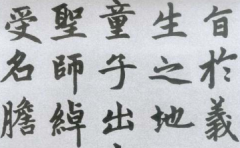 百於義
生之地
童子出
聖師綽
受名膽